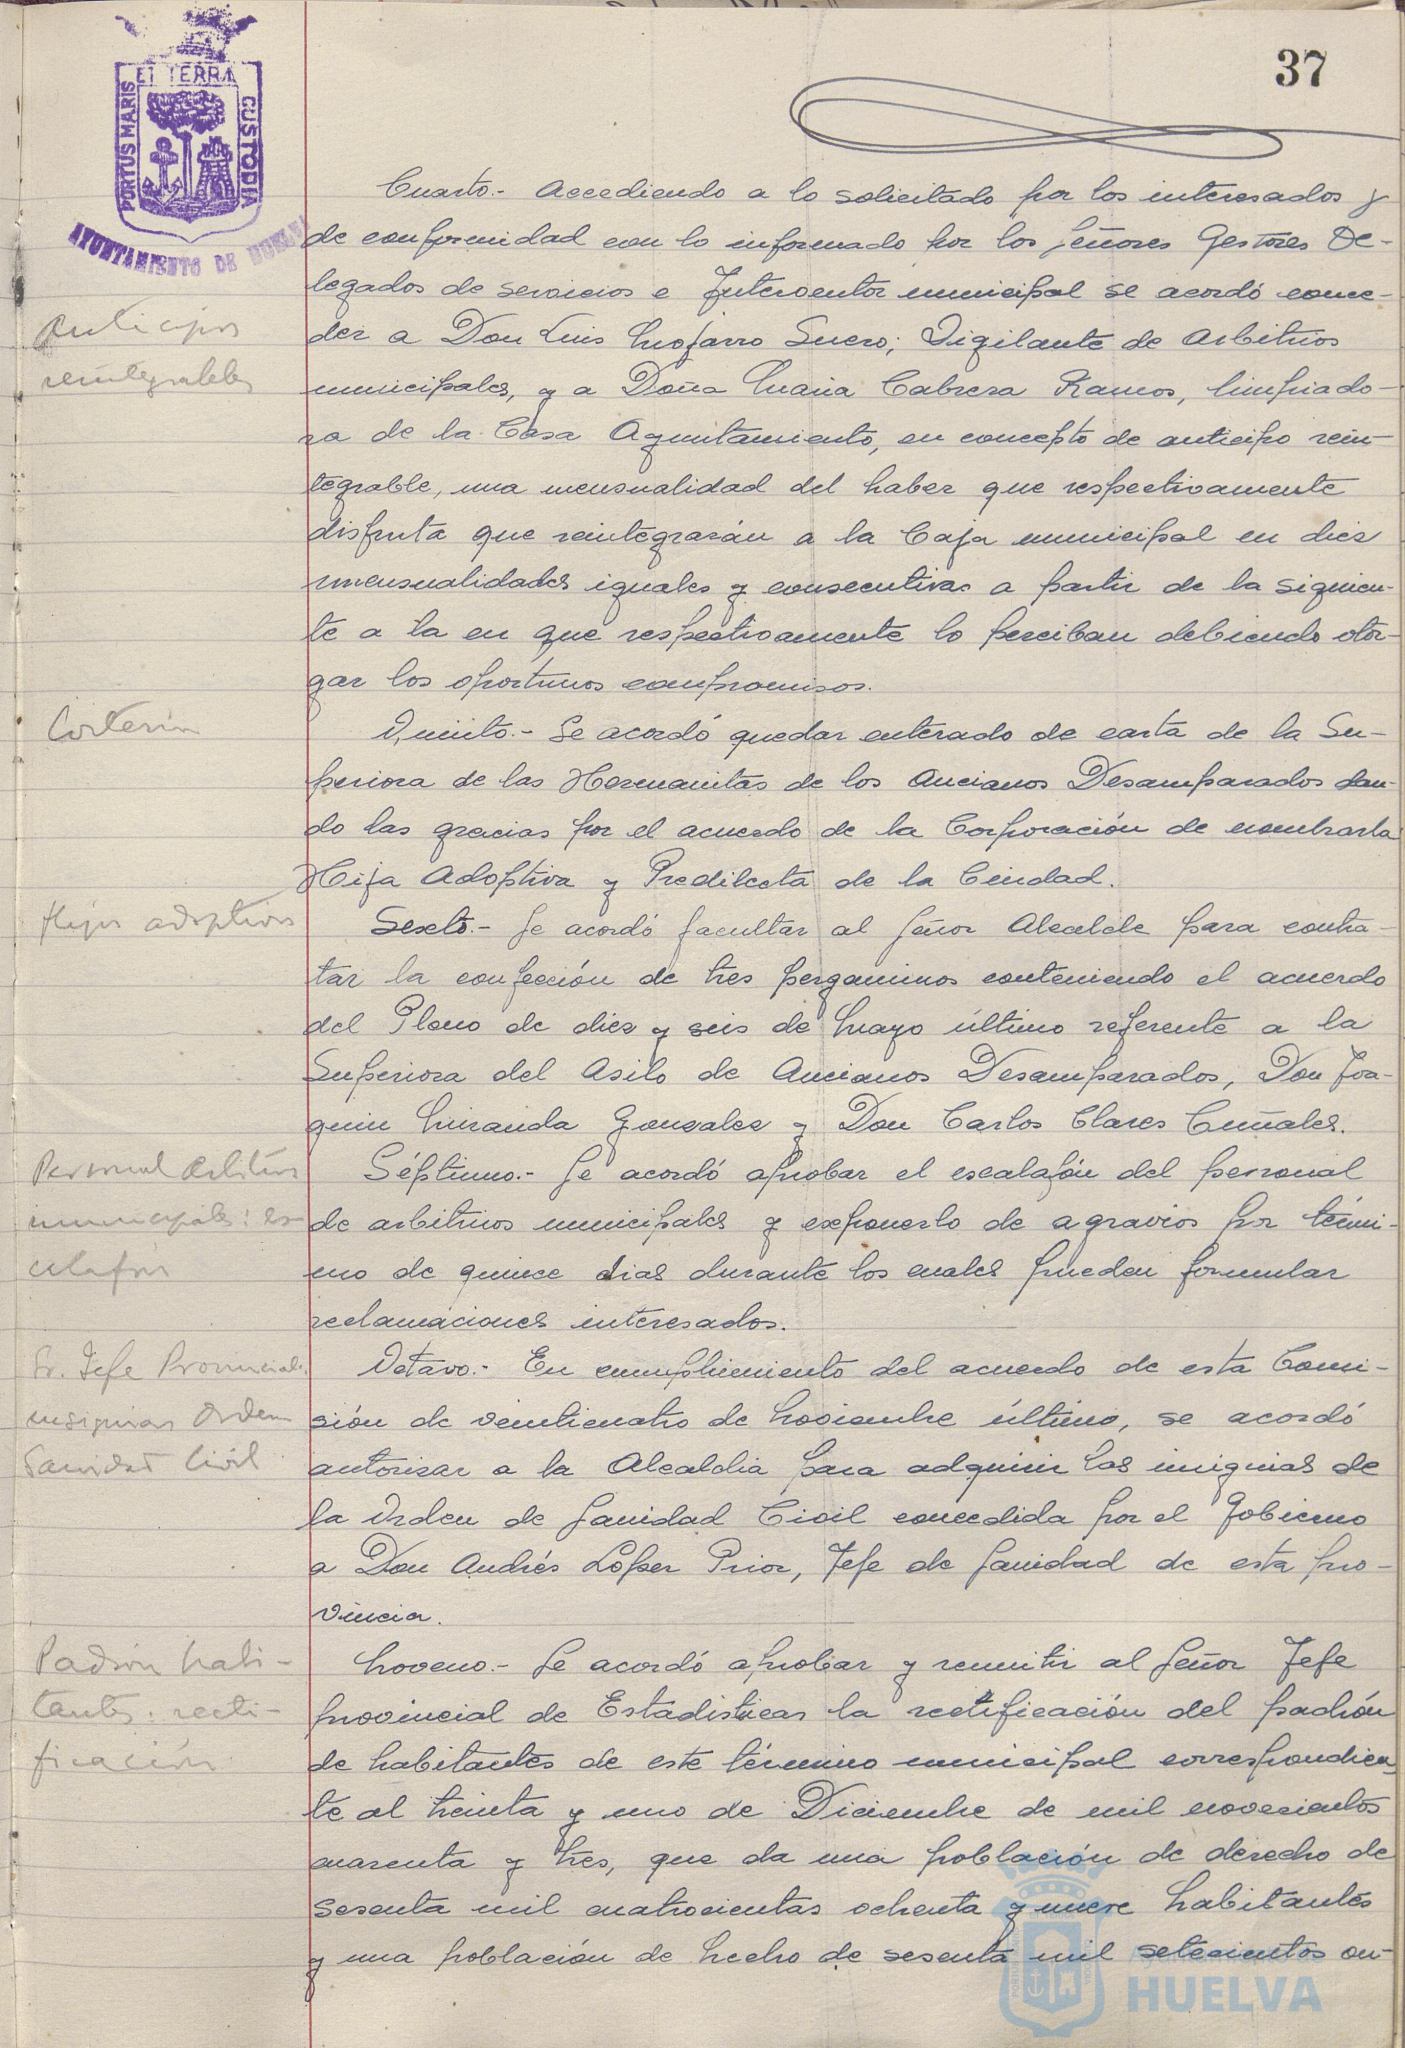 37
ET TERRA
PORTUS MARIS
CUSTODIA
AYUNTAMIENTO DE HUELVA
Cuarto.- Accediendo a lo solicitado por los interesados y
de conformidad con lo informado por los Señores Gestores De-
legados de servicios e Interventor municipal se acordó conce-
Anticipos
der a Don Luis Mojarro Suero; Vigilante de Arbitrios
reintegrables
municipales, y a Doña Maria Cabrera Ramos, limpiado-
ra de la Casa Ayuntamiento, en concepto de anticipo rein-
tegrable, una mensualidad del haber que respectivamente
disfruta que reintegrarán a la Caja municipal en diez
mensualidades iguales y consecutivas a partir de la siguien-
te a la en que respectivamente lo perciban debiendo otor-
gar los oportunos compromisos.
Cortesía
Quinto.- Se acordó quedar enterado de carta de la Su-
periora de las Hermanitas de los Ancianos Desamparados dan-
do las gracias por el acuerdo de la Corporación de nombrarla
Hija Adoptiva y Predilecta de la Ciudad.
Hijos adoptivos
Sexto.- Se acordó facultar al Señor Alcalde para contra-
tar la confección de tres pergaminos conteniendo el acuerdo
del Pleno de diez y seis de Mayo último referente a la
Superiora del Asilo de Ancianos Desamparados, Don Joa-
quin Miranda Gonzalez y Don Carlos Clares Cuñales.
Personal Arbitrios
Séptimo.- Se acordó aprobar el escalafón del personal
municipales: es-
de arbitrios municipales y exponerlo de agravios por térmi-
calafon
no de quince dias durante los cuales pueden formular
reclamaciones interesados.
Sr. Jefe Provincial.
Octavo.- En cumplimiento del acuerdo de esta Comi-
insignias Orden
sión de veinticuatro de Noviembre último, se acordó
Sanidad Civil
autorizar a la Alcaldia para adquirir las insignias de
la Orden de Sanidad Civil concedida por el Gobierno
a Don Andrés López Prior, Jefe de Sanidad de esta pro-
vincia.
Padrón habi-
Noveno.- Se acordó aprobar y remitir al Señor Jefe
tantes: recti-
provincial de Estadisticas la rectificación del padrón
ficación
de habitantes de este término municipal correspondien-
te al treinta y uno de Diciembre de mil novecientos
cuarenta y tres, que da una población de derecho de
sesenta mil cuatrocientas ochenta y nueve habitantes
y una población de hecho de sesenta mil setecientos on-
HUELVA